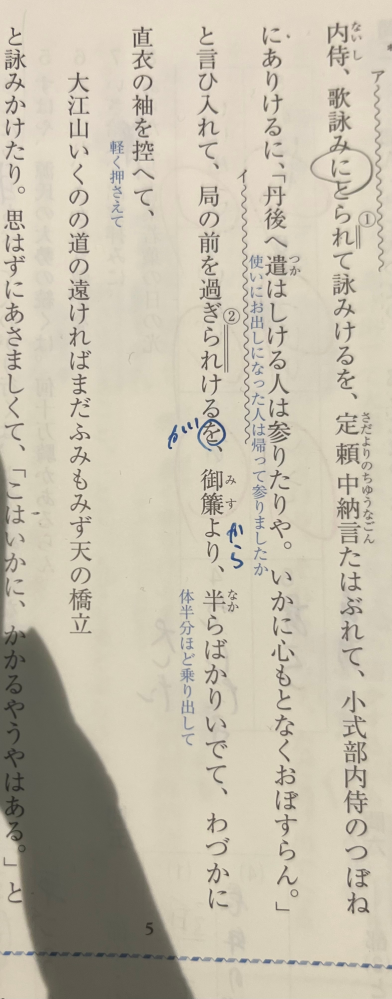 ア
内侍、歌詠みにとられて詠みけるを、定頼中納言たはぶれて、小式部内侍のつぼね
ないし
①
さだよりのちゆうなごん
にありけるに、「丹後へ遣はしける人は参りたりや。いかに心もとなくおぼすらん。」
つか
使いにお出しになった人は帰って参りましたか
イ
と言ひ入れて、局の前を過ぎられけるを、御簾より、半らばかりいでて、わづかに
②
みす
なか
が
から
体半分ほど乗り出して
直衣の袖を控へて、
軽く押さえて
大江山いくのの道の遠ければまだふみもみず天の橋立
と詠みかけたり。思はずにあさましくて、「こはいかに、かかるやうやはある。」と
5